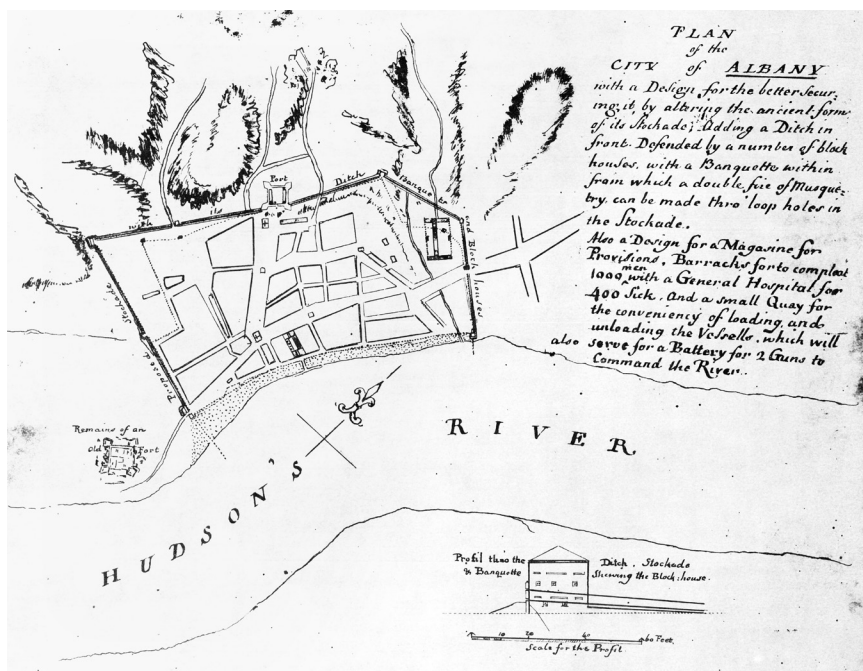 PLAN
of the
CITY of ALBANY
with a Design for the better Secur-
ing it by altering the ancient form
of its Stockade; Adding a Ditch in
front. Defended by a number of block
houses. with a Banquette within
from which a double fire of Musque-
try. can be made thro' loop holes in
the Stockade.
Also a Design for a Magasine for
Provisions, Barracks for to compleat
1000 men with a General Hospital for
400 Sick. and a small Quay for
the conveniency of loading and
unloading the Vessells. which will
also serve for a Battery for 2 Guns to
Command the River.
Fort
with its Ditch Banquette
and Block houses
Proposed Stockade
Remains of an
Old Fort
HUDSON'S RIVER
Profil thro the Ditch. Stockade
& Banquette Shewing the Block:house.
10 20 40 60 Feet
Scale for the Profil